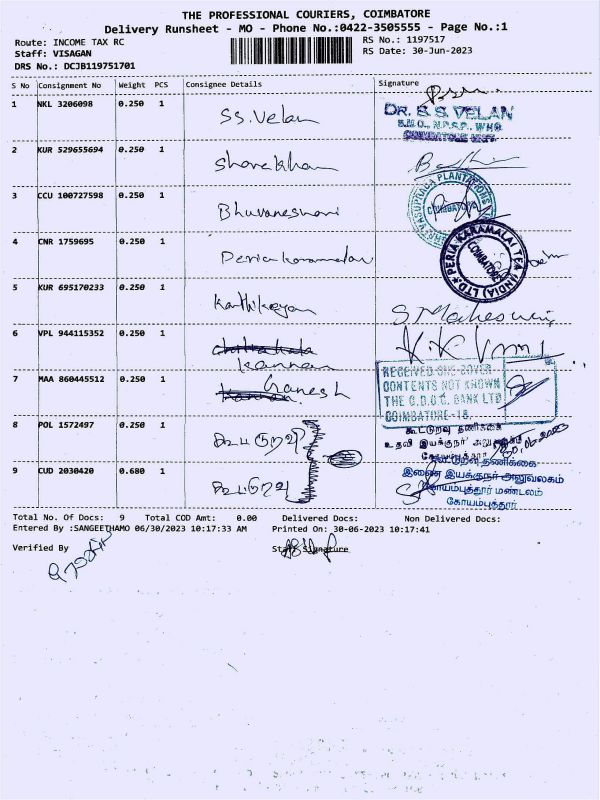 THE PROFESSIONAL COURIERS, COIMBATORE
Delivery Runsheet - MO - Phone No.:0422-3505555 - Page No.:1
Route: INCOME TAX RC
RS No.: 1197517
Staff: VISAGAN
RS Date: 30-Jun-2023
DRS No.: DCJB119751701
S No Consignment No Weight PCS Consignee Details Signature
1 NKL 3206098 0.250 1 SS.Velan
DR. S. S. VELAN
S.M.O., N.P.S.P., WHO
COIMBATORE UNIT.
2 KUR 529655694 0.250 1 Sharekhan
3 CCU 100727598 0.250 1 Bhuvaneswari
PLANTATIONS
COIMBATORE
4 CNR 1759695 0.250 1 Periakaramalai
PERIA KARAMALAI TEA (INDIA) LTD
COIMBATORE
5 KUR 695170233 0.250 1 Karthikeyan S Maheswari
6 VPL 944115352 0.250 1 Kannan
7 MAA 860445512 0.250 1 Ganesh
RECEIVED ONE COVER
CONTENTS NOT KNOWN
THE C.D.C.C. BANK LTD
COIMBATORE-18.
8 POL 1572497 0.250 1 கூட்டுறவு
கூட்டுறவு தணிக்கை
உதவி இயக்குநர்
30.06.2023
9 CUD 2030420 0.680 1 கூட்டுறவு
கூட்டுறவு தணிக்கை
இணை இயக்குநர் அலுவலகம்
கோயம்புத்தூர் மண்டலம்
கோயம்புத்தூர்
Total No. Of Docs: 9 Total COD Amt: 0.00 Delivered Docs: Non Delivered Docs:
Entered By :SANGEETHAMO 06/30/2023 10:17:33 AM Printed On: 30-06-2023 10:17:41
Verified By Staff Signature